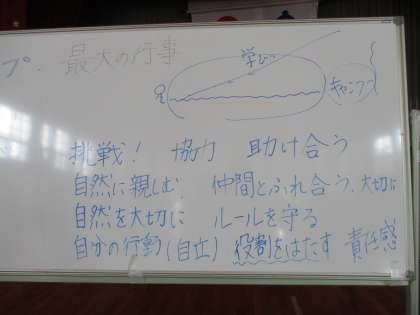 プ. 最大の行事
学び
キャンプ
挑戦! 協力 助け合う
自然に親しむ. 仲間とふれ合う. 大切に
自然を大切に ルールを守る
自分の行動(自立) 役割をはたす 責任感